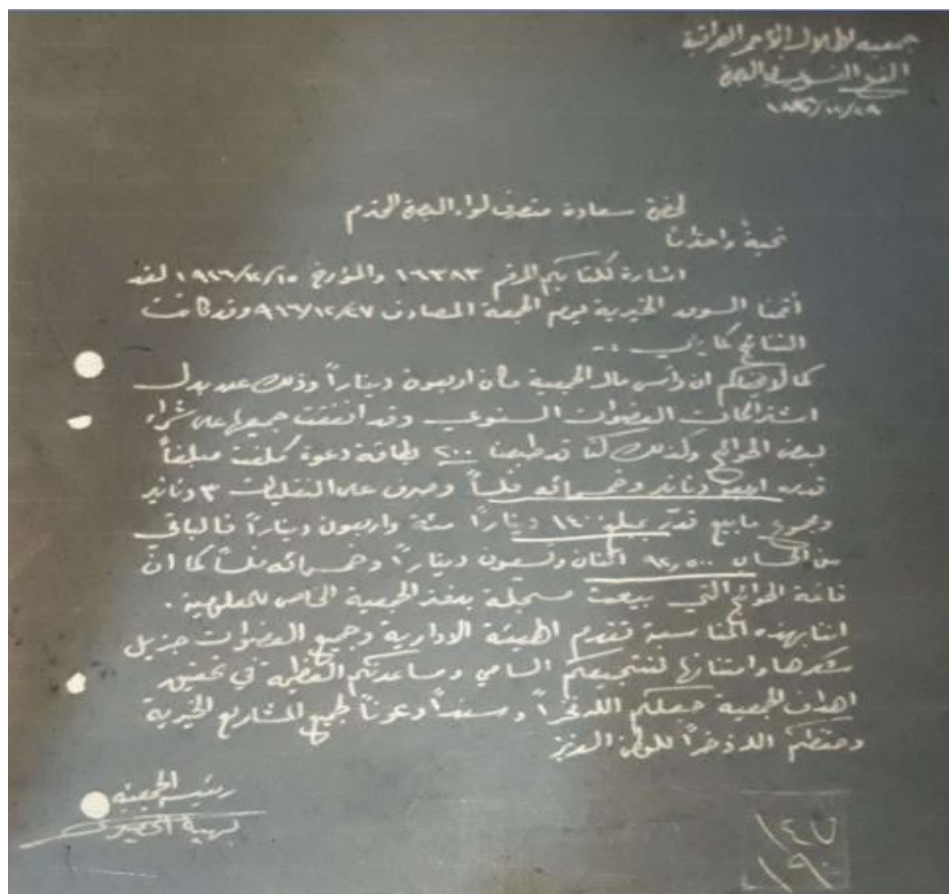 جمعية الهلال الأحمر العراقية
الفرع النسوي في البصرة
لحضرة سعادة متصرف لواء البصرة المحترم
تحية واحتراماً
اشارة لكتابكم المرقم ١٦٣٨٣ والمؤرخ ١٩٤٦/١٢/١٥ لقد
أقمنا السوق الخيرية يوم الجمعة المصادف ٩٤٦/١٢/٢٧ وقد كانت
النتائج كما يلي :-
كما لا يخفاكم ان رأس مال الجمعية كان اربعون ديناراً وذلك عن بدل
اشتراكات العضوات السنوي وقد انفقت جميعها على شراء
بعض الحوائج وكذلك كنا قد طبعنا ٢٠٠ بطاقة دعوة كلفت مبلغاً
قدره اربعة دنانير وخمسمائة فلساً وصرف على النقليات ٣ دنانير
ومجموع مابيع قدّر بمبلغ ١٤٠ ديناراً مئة واربعون ديناراً فالباقي
من الحساب ٩٢,٥٠٠ اثنان وتسعون ديناراً وخمسمائة فلساً كما انّ
قائمة الحوائج التي بيعت مسجلة بدفتر الجمعية الخاص للعملية .
اننا بهذه المناسبة تتقدم الهيئة الادارية وجميع العضوات جزيل
شكرها وامتنانها لتشجيعكم السامي ومساعدتكم العظيمة في تحقيق
اهداف الجمعية جعلكم الله فخراً وسنداً وعوناً لجميع المشاريع الخيرية
وحفظكم الله ذخراً للوطن العزيز
رئيسة الجمعية
بهية
١٤٧
١٩٠